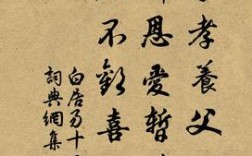 孝養父
恩愛暫
不歡喜
白居易十
詞典網集